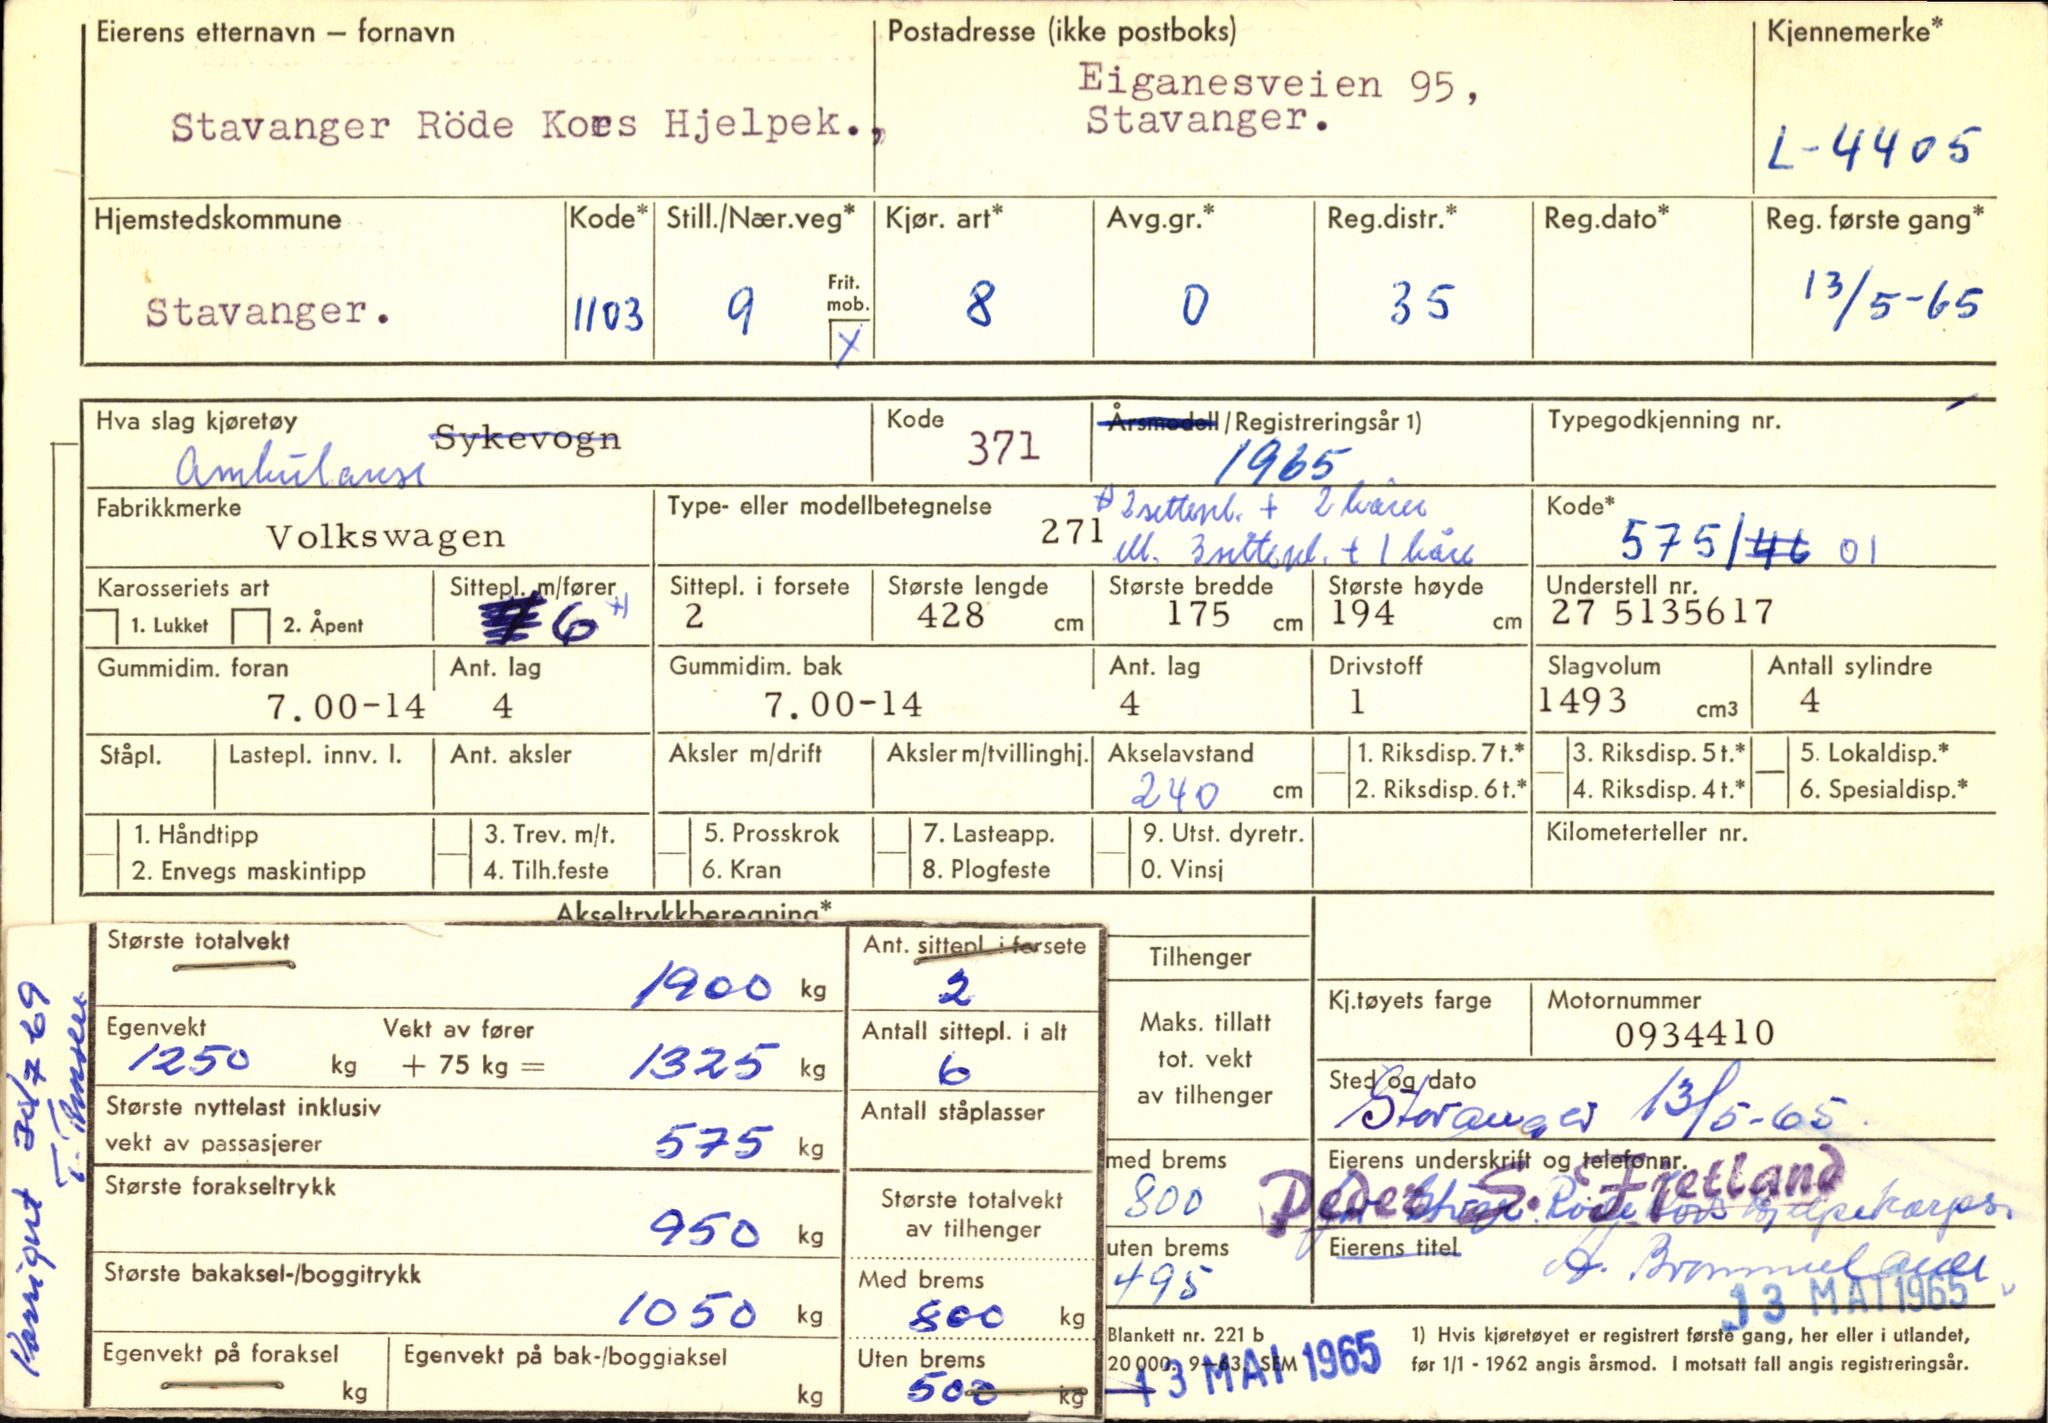 Eierens etternavn – fornavn
Postadresse (ikke postboks)
Kjennemerke*
Stavanger Röde Kors Hjelpek.,
Eiganesveien 95,
Stavanger.
L-4405
Hjemstedskommune
Kode*
Still./Nær.veg*
Kjør. art*
Avg.gr.*
Reg.distr.*
Reg.dato*
Reg. første gang*
Stavanger.
1103
9
Frit.
mob.
X
8
0
35
13/5-65
Hva slag kjøretøy
Sykevogn
Ambulanse
Kode
371
Årsmodell/Registreringsår 1)
1965
Typegodkjenning nr.
Fabrikkmerke
Volkswagen
Type- eller modellbetegnelse
271
2 sittepl. + 2 bårer
ell. 3 sittepl. + 1 båre
Kode*
575/46 01
Karosseriets art
1. Lukket
2. Åpent
Sittepl. m/fører
7 6 x)
Sittepl. i forsete
2
Største lengde
428 cm
Største bredde
175 cm
Største høyde
194 cm
Understell nr.
27 5135617
Gummidim. foran
7.00-14
Ant. lag
4
Gummidim. bak
7.00-14
Ant. lag
4
Drivstoff
1
Slagvolum
1493 cm3
Antall sylindre
4
Ståpl.
Lastepl. innv. l.
Ant. aksler
Aksler m/drift
Aksler m/tvillinghj.
Akselavstand
240 cm
1. Riksdisp. 7 t.*
2. Riksdisp. 6 t.*
3. Riksdisp. 5 t.*
4. Riksdisp. 4 t.*
5. Lokaldisp.*
6. Spesialdisp.*
1. Håndtipp
2. Envegs maskintipp
3. Trev. m/t.
4. Tilh.feste
5. Prosskrok
6. Kran
7. Lasteapp.
8. Plogfeste
9. Utst. dyretr.
0. Vinsj
Kilometerteller nr.
Akseltrykkberegning*
Største totalvekt
1900 kg
Egenvekt
1250 kg
Vekt av fører
+ 75 kg = 1325 kg
Største nyttelast inklusiv
vekt av passasjerer
575 kg
Største forakseltrykk
950 kg
Største bakaksel-/boggitrykk
1050 kg
Egenvekt på foraksel
kg
Egenvekt på bak-/boggiaksel
kg
Ant. sittepl. i forsete
2
Antall sittepl. i alt
6
Antall ståplasser
Største totalvekt
av tilhenger
Med brems
800 kg
Uten brems
500 kg
Korrigert 30/7 69
Tilhenger
Maks. tillatt
tot. vekt
av tilhenger
med brems
800
uten brems
495
Kj.tøyets farge
Motornummer
0934410
Sted og dato
Stavanger 13/5-65
Eierens underskrift og telefonnr.
Peder S. Fjetland
Røde Kors Hjelpekorps.
Eierens titel
13 MAI 1965
Blankett nr. 221 b
20 000. 9–63. SEM
13 MAI 1965
1) Hvis kjøretøyet er registrert første gang, her eller i utlandet,
før 1/1 - 1962 angis årsmod. I motsatt fall angis registreringsår.